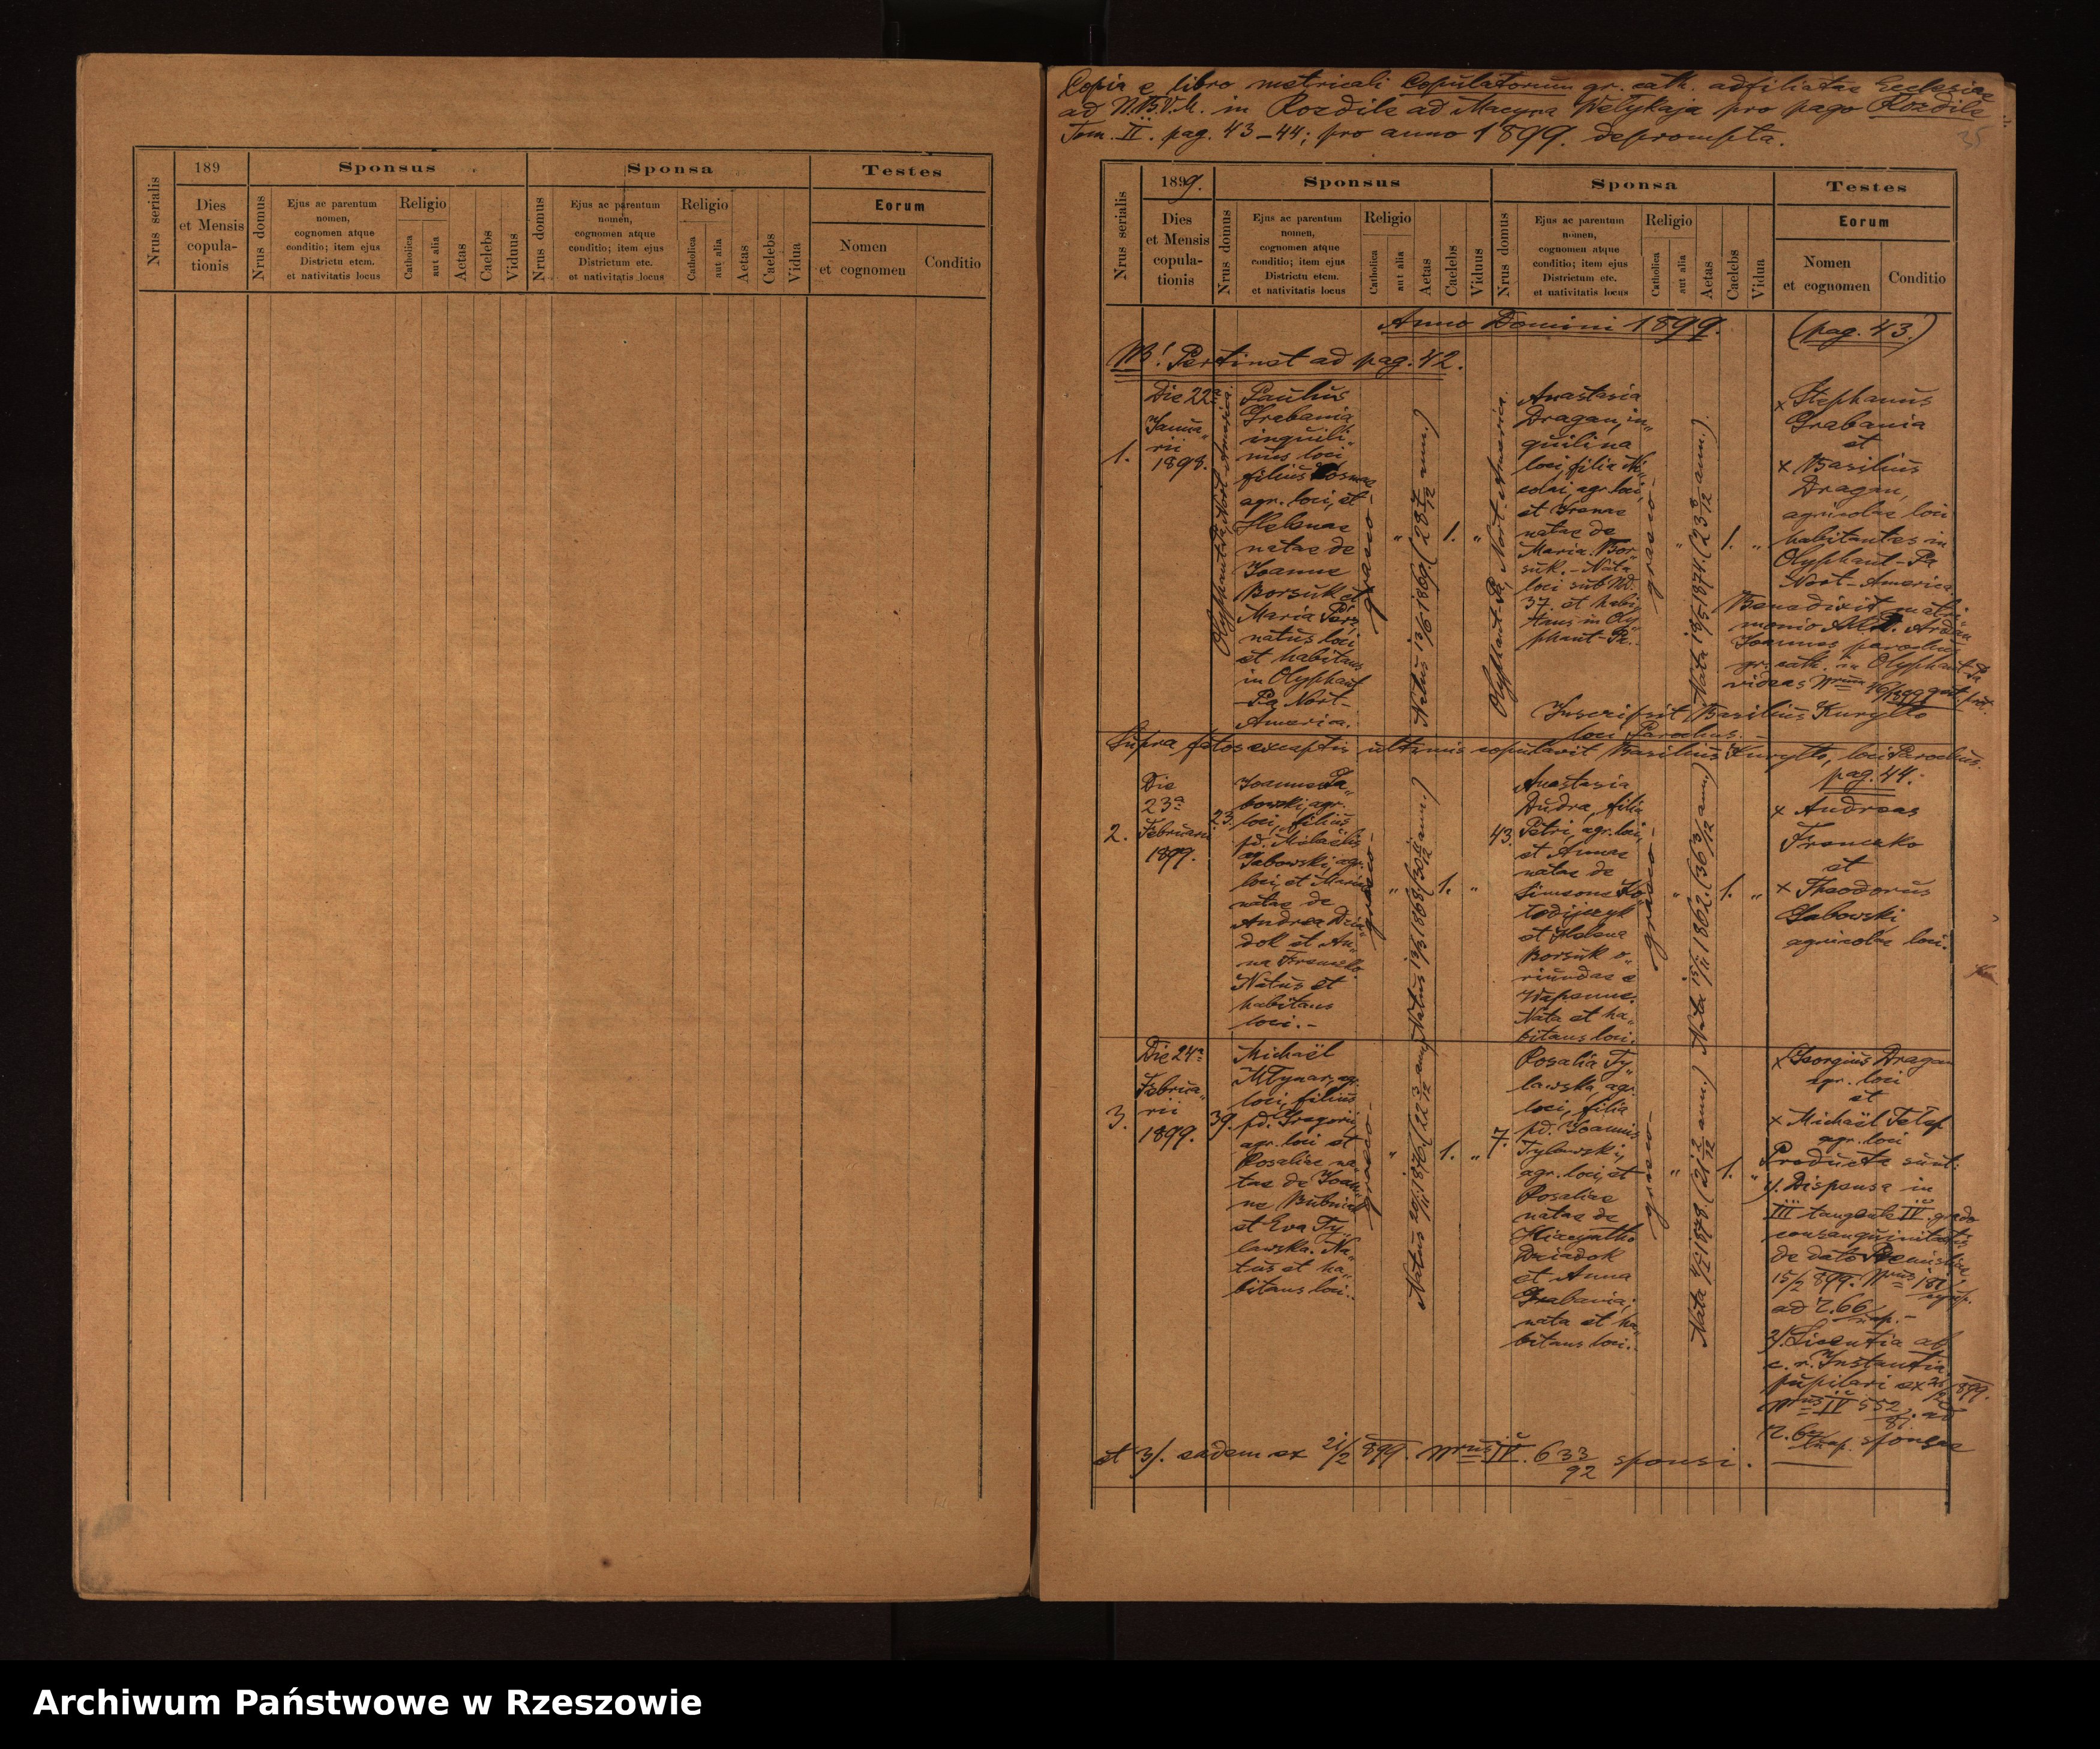 Nrus serialis
189
Dies
et Mensis
copula-
tionis
Sponsus
Nrus domus
Ejus ac parentum
nomen,
cognomen atque
conditio; item ejus
Districtu etcm.
et nativitatis locus
Religio
Catholica
aut alia
Aetas
Caelebs
Viduus
Sponsa
Nrus domus
Ejus ac parentum
nomen,
cognomen atque
conditio; item ejus
Districtum etc.
et nativitatis locus
Religio
Catholica
aut alia
Aetas
Caelebs
Vidua
Testes
Eorum
Nomen
et cognomen
Conditio
Copia e libro metricali Copulatorum gr. cath. adfiliatae Ecclesiae
ad N.B.V.M. in Rozdile ad Macyna Welykaja pro pago Rozdile
Tom. II. pag. 43–44; pro anno 1899. deprompta.
35
Nrus serialis
1899.
Dies
et Mensis
copula-
tionis
Sponsus
Nrus domus
Ejus ac parentum
nomen,
cognomen atque
conditio; item ejus
Districtu etcm.
et nativitatis locus
Religio
Catholica
aut alia
Aetas
Caelebs
Viduus
Sponsa
Nrus domus
Ejus ac parentum
nomen,
cognomen atque
conditio; item ejus
Districtum etc.
et nativitatis locus
Religio
Catholica
aut alia
Aetas
Caelebs
Vidua
Testes
Eorum
Nomen
et cognomen
Conditio
Anno Domini 1899.
(pag. 43.)
NB! Pertinet ad pag. 42.
1.
Die 22a
Janua„
rii
1898.
Olyphant Pa, Nort-America
Paulus
Grabania
inquili„
nus loci
filius Cosmae
agr. loci, et
Helenae
natae de
Joanne
Borsuk et
Maria
natus loci
et habitans
in Olyphant
Pa Nort-
America.
graeco-
„
Natus 13/6 1869. (28 7/12 ann.)
1.
„
Olyphant-Pa, Nort-America.
Anastasia
Dragan, in„
quilina
loci, filia Ni„
colai, agr. loci,
et Irenae
natae de
Maria Bor„
suk. – Nata
loci sub Nd.
37. et habi„
tans in Oly„
phant-Pa.
graeco-
„
Nata 13/5 1874. (23 8/12 ann.)
1.
„
x Stephanus
Grabania
et
x Basilius
Dragan,
agricolae loci
habitantes in
Olyphant-Pa
Nort-America
Benedixit matri„
monio Ardan
Joannes parochus
gr. cath. in Olyphant-Pa
videas Nrum
Inscripsit Basilius Kuryllo
loci Parochus.
Supra fatos exceptis ultimis copulavit Basilius Kuryllo, loci Parochus.
pag. 44.
2.
Die
23a
Februarii
1899.
23.
Joannes Da„
bowski, agr.
loci, filius
pd. Michaëlis
Dabowski, agr.
loci, et Mariae
natae de
Andrea Dzia„
dok et An„
na Frencko
Natus et
habitans
loci. –
graeco-
„
1.
„
43.
Anastasia
Dudra, filia
Petri, agr. loci,
et Annae
natae de
Simeone Ko„
lodijczyk
et Helena
Borsuk o„
riundae e
Wapenne.
Nata et ha„
bitans loci.
graeco-
„
Nata 15/11 1862. (36 3/12 ann.)
1.
„
x Andreas
Frencko
et
x Theodorus
Dabowski
agricolae loci.
3.
Die 24a
Februa„
rii
1899.
39.
Michaël
Mlynar, agr.
loci, filius
pd. Gregorii,
agr. loci et
Rosaliae na„
tae de Joan„
ne Bubniak
et Eva Ty„
lawska. Na„
tus et ha„
bitans loci.
graeco-
„
Natus 20/11 1876 (22 3/12 ann.)
1.
„
7.
Rosalia Ty„
lawska, agr.
loci, filia
pd. Joannis
Tylawski,
agr. loci, et
Rosaliae
natae de
Hiacyntho
Dziadok
et Anna
Grabania;
nata et ha„
bitans loci.
graeco-
„
Nata 4/12 1878. (21 2/12 ann.)
1.
„
x Georgius Dragan
agr. loci
et
x Michaël Telep
agr. loci
Producta sunt:
1/. Dispensa in
III tangente IV. gradu
consanguinitatis
de dato Premisliae
15/2 899. Nrus
ad 2.66
2/. Licentia ab
c. r. Instantia
pupilari ex 899.
Nrus IV 552 ad
sponsae
et 3/. eadem ex 21/2 899. Nrus IV. 633/92 sponsi.
Archiwum Państwowe w Rzeszowie